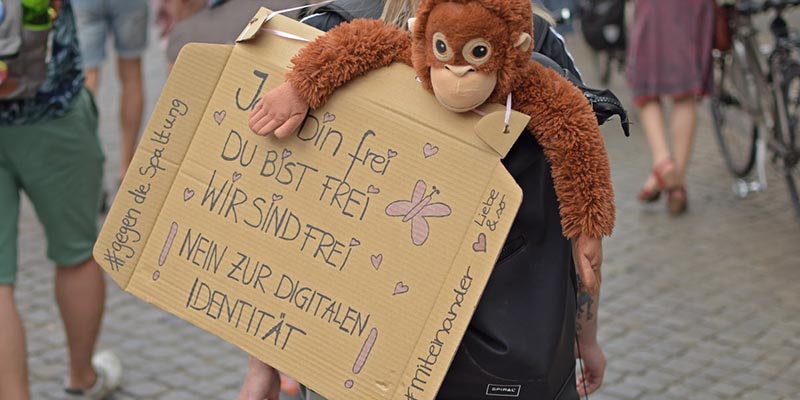 Ich bin frei
DU BIST FREI
WIR SIND FREI
NEIN ZUR DIGITALEN
IDENTITÄT
#gegen die Spaltung
Liebe
& so
#miteinander
SPIRAL